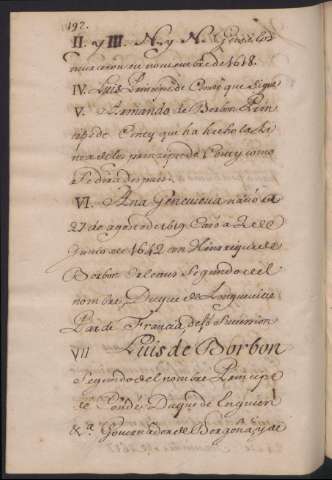 192.
II. y III. N. y N. Gemelos
murieron en nouiembre de 1618.
IV. Luis Principe de Condè que sigue
V. Armando de Borbon Prin
cipe de Conty que ha hecho la Li
nea de los principes de Conty como
se dira despues.
VI. Ana Genoueua naciò la
27 de agosto de 1619. Casò a 2 de
Junio de 1642 con Henrique de
Borbon Orleans Segundo de el
nombre, Duque de Longueuile
Par de Francia, dexò Succession
VII Luis de Borbon
Segundo del nombre Principe
de Condè, Duque de Enguien
&a. Gouernador de Borgoña, y de